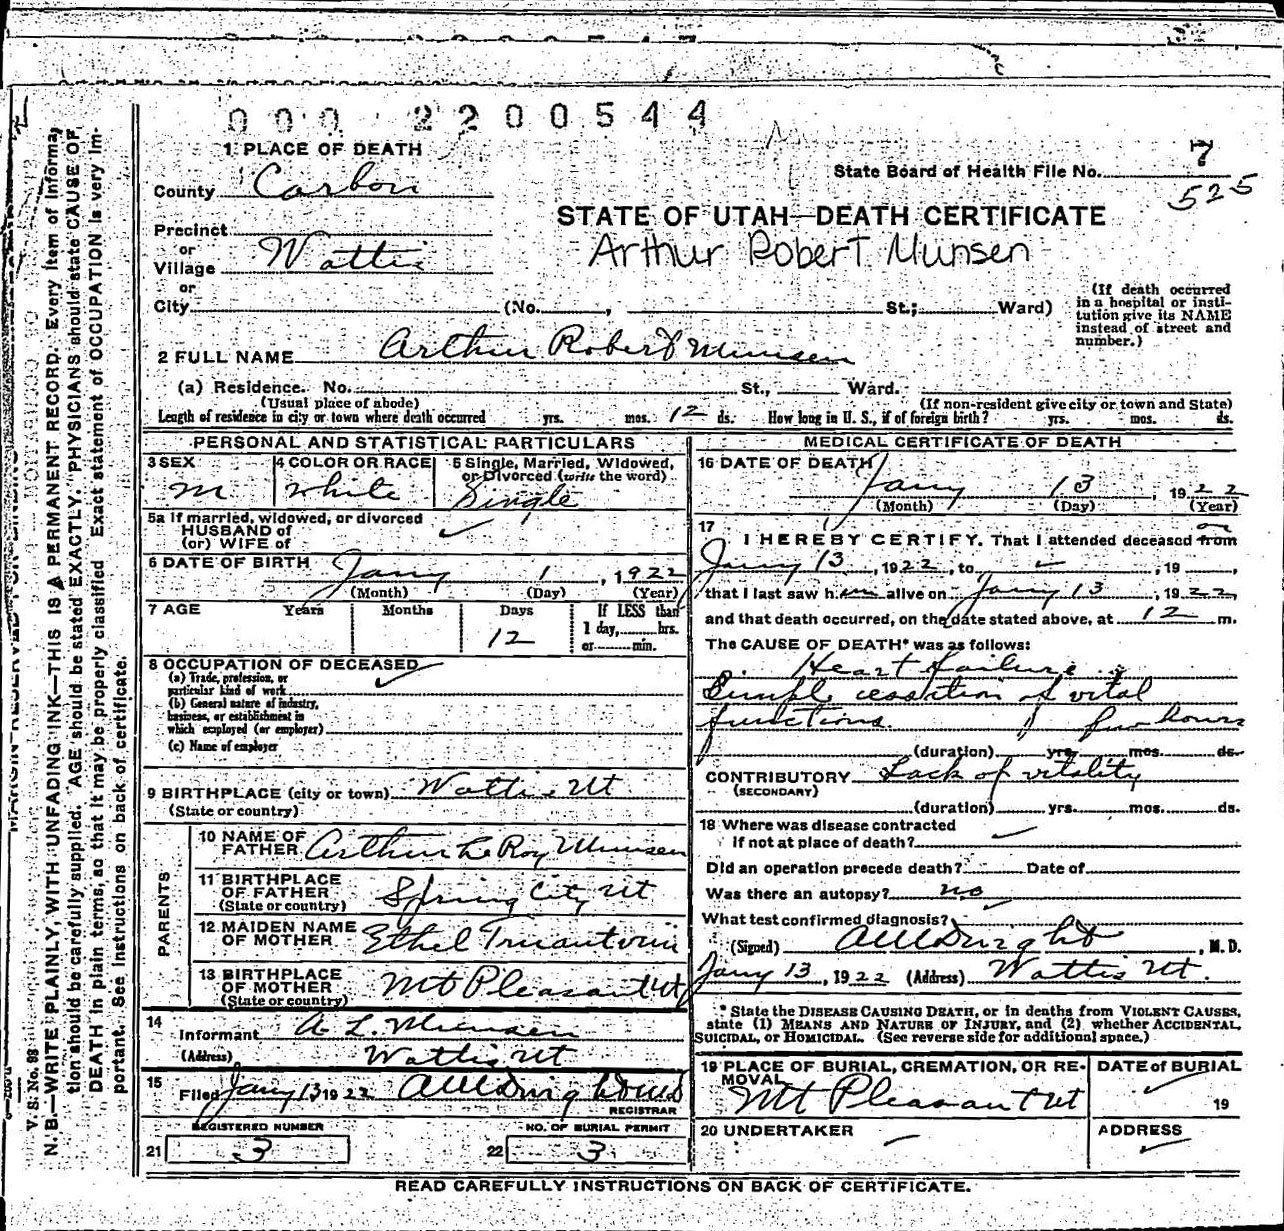 000 2200544
1 PLACE OF DEATH
State Board of Health File No. 7
525
County Carbon
STATE OF UTAH—DEATH CERTIFICATE
Arthur Robert Munsen
Precinct
or
Village Wattis
or
City (No. , St.; Ward)
(If death occurred
in a hospital or insti-
tution give its NAME
instead of street and
number.)
2 FULL NAME Arthur Robert Munsen
(a) Residence. No. St., Ward.
(Usual place of abode) (If non-resident give city or town and State)
Length of residence in city or town where death occurred yrs. mos. 12 ds. How long in U. S., if of foreign birth? yrs. mos. ds.
PERSONAL AND STATISTICAL PARTICULARS
3 SEX
m
4 COLOR OR RACE
white
5 Single, Married, Widowed,
or Divorced (write the word)
Single
5a If married, widowed, or divorced
HUSBAND of
(or) WIFE of
6 DATE OF BIRTH Jany 1, 1922
(Month) (Day) (Year)
7 AGE Years Months Days If LESS than
12 1 day, hrs.
or min.
8 OCCUPATION OF DECEASED
(a) Trade, profession, or
particular kind of work
(b) General nature of industry,
business, or establishment in
which employed (or employer)
(c) Name of employer
9 BIRTHPLACE (city or town) Wattis Ut
(State or country)
PARENTS
10 NAME OF
FATHER Arthur LeRoy Munsen
11 BIRTHPLACE
OF FATHER Spring City Ut
(State or country)
12 MAIDEN NAME
OF MOTHER Ethel
13 BIRTHPLACE
OF MOTHER Mt Pleasant Ut
(State or country)
14
Informant A L. Munsen
(Address) Wattis Ut
15
Filed Jany 13 1922
REGISTRAR
REGISTERED NUMBER NO. OF BURIAL PERMIT
21 3 22 3
MEDICAL CERTIFICATE OF DEATH
16 DATE OF DEATH
Jany 13, 1922
(Month) (Day) (Year)
17 on
I HEREBY CERTIFY. That I attended deceased from
Jany 13, 1922, to , 19 ,
that I last saw him alive on Jany 13, 1922,
and that death occurred, on the date stated above, at 12 m.
The CAUSE OF DEATH* was as follows:
Heart failure
Simple cessation of vital
functions. few hours
(duration) yrs. mos. ds.
CONTRIBUTORY Lack of vitality
(SECONDARY)
(duration) yrs. mos. ds.
18 Where was disease contracted
If not at place of death?
Did an operation precede death? Date of
Was there an autopsy? no
What test confirmed diagnosis?
(Signed) , M. D.
Jany 13, 1922 (Address) Wattis Ut.
* State the DISEASE CAUSING DEATH, or in deaths from VIOLENT CAUSES,
state (1) MEANS AND NATURE OF INJURY, and (2) whether ACCIDENTAL,
SUICIDAL, or HOMICIDAL. (See reverse side for additional space.)
19 PLACE OF BURIAL, CREMATION, OR RE-
MOVAL
Mt Pleasant Ut
DATE of BURIAL
19
20 UNDERTAKER
ADDRESS
READ CAREFULLY INSTRUCTIONS ON BACK OF CERTIFICATE.
V. S. No. 98
N. B.—WRITE PLAINLY, WITH UNFADING INK—THIS IS A PERMANENT RECORD. Every item of informa-
tion should be carefully supplied. AGE should be stated EXACTLY. PHYSICIANS should state CAUSE OF
DEATH in plain terms, so that it may be properly classified. Exact statement of OCCUPATION is very im-
portant. See instructions on back of certificate.